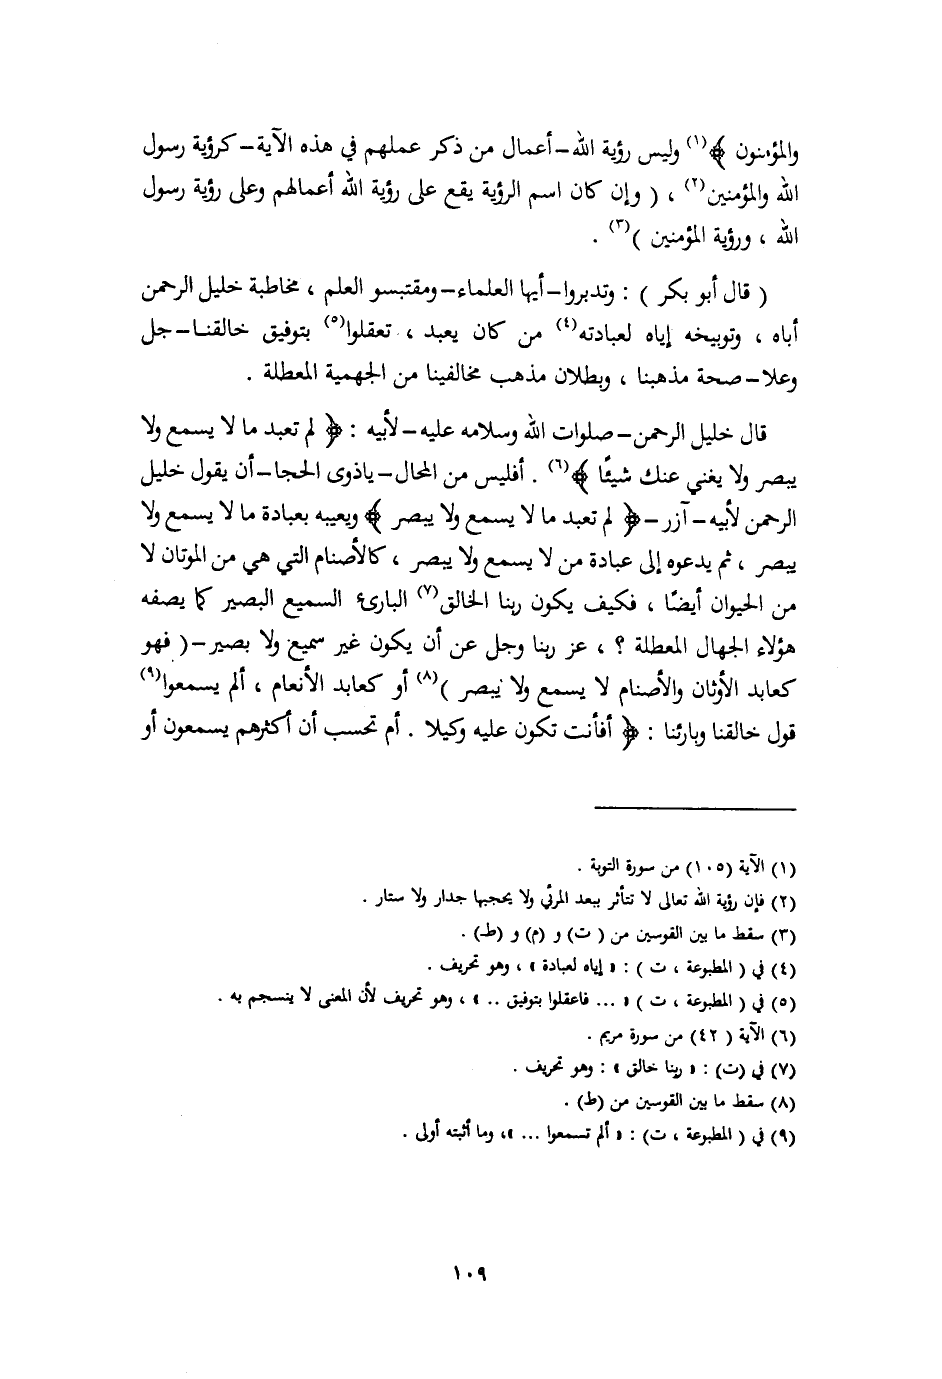 والمؤمنون ﴾(١) وليس رؤية الله–أعمال من ذكر عملهم في هذه الآية–كرؤية رسول
الله والمؤمنين(٢) ، ( وإن كان اسم الرؤية يقع على رؤية الله أعمالهم وعلى رؤية رسول
الله ، ورؤية المؤمنين )(٣) .
( قال أبو بكر ) : وتدبروا–أيها العلماء–ومقتبسو العلم ، مخاطبة خليل الرحمن
أباه ، وتوبيخه إياه لعبادته(٤) من كان يعبد ، تعقلوا(٥) بتوفيق خالقنا–جل
وعلا–صحة مذهبنا ، وبطلان مذهب مخالفينا من الجهمية المعطلة .
قال خليل الرحمن–صلوات الله وسلامه عليه–لأبيه : ﴿ لم تعبد ما لا يسمع ولا
يبصر ولا يغني عنك شيئًا ﴾(٦) . أفليس من المحال–ياذوى الحجا–أن يقول خليل
الرحمن لأبيه–آزر–﴿ لم تعبد ما لا يسمع ولا يبصر ﴾ ويعيبه بعبادة ما لا يسمع ولا
يبصر ، ثم يدعوه إلى عبادة من لا يسمع ولا يبصر ، كالأصنام التي هي من الموتان لا
من الحيوان أيضًا ، فكيف يكون ربنا الخالق(٧) البارئ السميع البصير كما يصفه
هؤلاء الجهال المعطلة ؟ ، عز ربنا وجل عن أن يكون غير سميع ولا بصير–( فهو
كعابد الأوثان والأصنام لا يسمع ولا يبصر )(٨) أو كعابد الأنعام ، ألم يسمعوا(٩)
قول خالقنا وبارئنا : ﴿ أفأنت تكون عليه وكيلا . أم تحسب أن أكثرهم يسمعون أو
(١) الآية (١٠٥) من سورة التوبة .
(٢) فإن رؤية الله تعالى لا تتأثر ببعد المرئي ولا يحجبها جدار ولا ستار .
(٣) سقط ما بين القوسين من ( ت) و (م) و (طـ) .
(٤) في ( المطبوعة ، ت ) : « إياه لعبادة » ، وهو تحريف .
(٥) في ( المطبوعة ، ت ) « ... فاعقلوا بتوفيق .. » ، وهو تحريف لأن المعنى لا ينسجم به .
(٦) الآية ( ٤٢) من سورة مريم .
(٧) في (ت) : « ربنا خالق » : وهو تحريف .
(٨) سقط ما بين القوسين من (ط) .
(٩) في ( المطبوعة ، ت) : « ألم تسمعوا ... »، وما أثبته أولى .
١٠٩